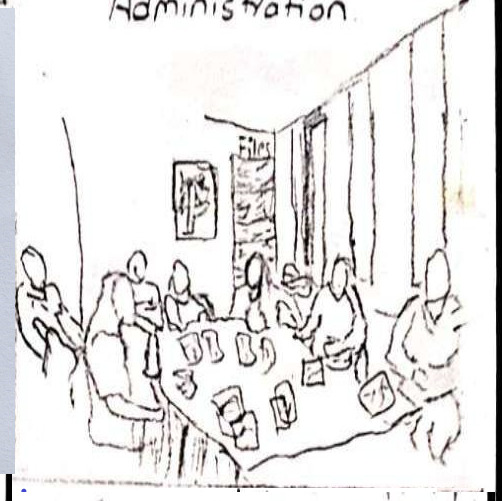 Administration
Files